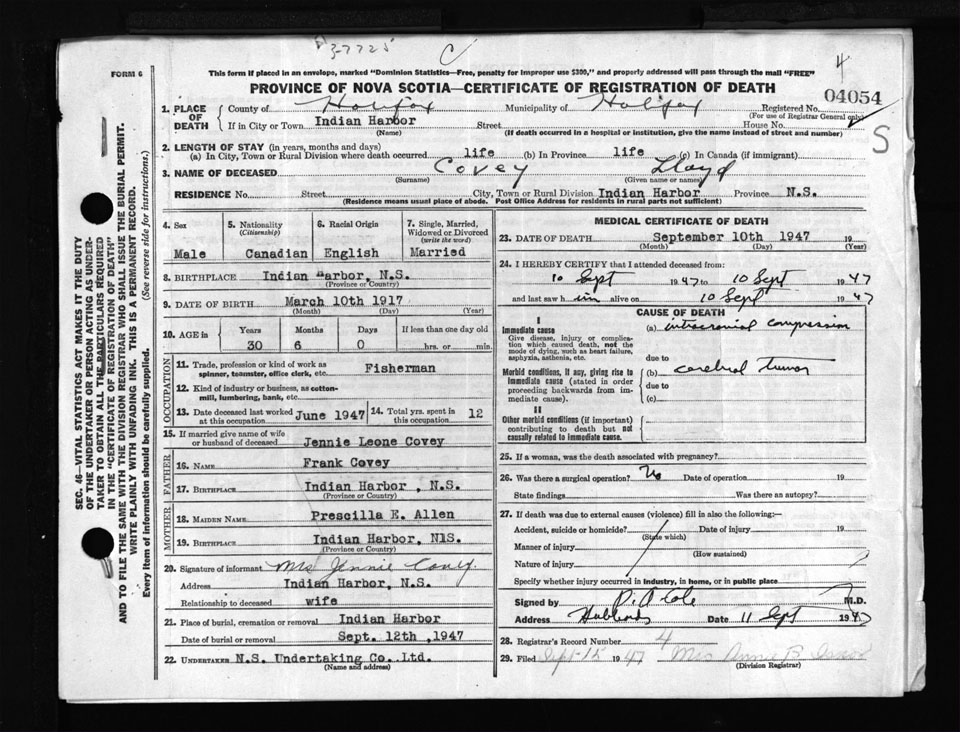 3-7725
C
4
FORM 6
This form if placed in an envelope, marked "Dominion Statistics—Free, penalty for improper use $300," and properly addressed will pass through the mail "FREE"
PROVINCE OF NOVA SCOTIA—CERTIFICATE OF REGISTRATION OF DEATH
04054
1. PLACE OF DEATH County of Halifax Municipality of Halifax Registered No.
(For use of Registrar General only)
If in City or Town Indian Harbor Street House No.
(Name) (If death occurred in a hospital or institution, give the name instead of street and number)
S
2. LENGTH OF STAY (in years, months and days)
(a) In City, Town or Rural Division where death occurred life (b) In Province life (c) In Canada (if immigrant)
3. NAME OF DECEASED Covey Lloyd
(Surname) (Given name or names)
RESIDENCE No. Street City, Town or Rural Division Indian Harbor Province N.S.
(Residence means usual place of abode. Post Office Address for residents in rural parts not sufficient)
4. Sex 5. Nationality (Citizenship) 6. Racial Origin 7. Single, Married, Widowed or Divorced (write the word)
Male Canadian English Married
8. BIRTHPLACE Indian Harbor, N.S.
(Province or Country)
9. DATE OF BIRTH March 10th 1917
(Month) (Day) (Year)
10. AGE in Years Months Days If less than one day old
30 6 0 hrs. or min.
OCCUPATION
11. Trade, profession or kind of work as spinner, teamster, office clerk, etc. Fisherman
12. Kind of industry or business, as cotton-mill, lumbering, bank, etc.
13. Date deceased last worked at this occupation June 1947 14. Total yrs. spent in this occupation 12
15. If married give name of wife or husband of deceased Jennie Leone Covey
FATHER
16. NAME Frank Covey
17. BIRTHPLACE Indian Harbor, N.S.
(Province or Country)
MOTHER
18. MAIDEN NAME Prescilla E. Allen
19. BIRTHPLACE Indian Harbor, N1S.
(Province or Country)
20. Signature of informant Mrs Jennie Covey.
Address Indian Harbor, N.S.
Relationship to deceased wife
21. Place of burial, cremation or removal Indian Harbor
Date of burial or removal Sept. 12th ,1947
22. UNDERTAKER N.S. Undertaking Co. Ltd.
(Name and address)
MEDICAL CERTIFICATE OF DEATH
23. DATE OF DEATH September 10th 1947 19
(Month) (Day) (Year)
24. I HEREBY CERTIFY that I attended deceased from:
10 Sept 1947 to 10 Sept 1947
and last saw him alive on 10 Sept 1947
CAUSE OF DEATH
I
Immediate cause (a) intracranial compression
Give disease, injury or complication which caused death, not the mode of dying, such as heart failure, asphyxia, asthenia, etc.
due to
Morbid conditions, if any, giving rise to immediate cause (stated in order proceeding backwards from immediate cause).
(b) cerebral tumor
due to
(c)
II
Other morbid conditions (if important) contributing to death but not causally related to immediate cause.
25. If a woman, was the death associated with pregnancy?
26. Was there a surgical operation? No Date of operation 19
State findings Was there an autopsy?
27. If death was due to external causes (violence) fill in also the following:—
Accident, suicide or homicide? Date of injury 19
(State which)
Manner of injury
(How sustained)
Nature of injury
Specify whether injury occurred in industry, in home, or in public place
Signed by P. A. Cole M.D.
Address Hubbards Date 11 Sept 1947
28. Registrar's Record Number 4
29. Filed Sept-15 1947 Mrs Annie B
(Division Registrar)
SEC. 46—VITAL STATISTICS ACT MAKES IT THE DUTY
OF THE UNDERTAKER OR PERSON ACTING AS UNDER-
TAKER TO OBTAIN ALL THE PARTICULARS REQUIRED
IN THE "CERTIFICATE OF REGISTRATION OF DEATH"
AND TO FILE THE SAME WITH THE DIVISION REGISTRAR WHO SHALL ISSUE THE BURIAL PERMIT.
WRITE PLAINLY WITH UNFADING INK. THIS IS A PERMANENT RECORD.
Every item of information should be carefully supplied. (See reverse side for instructions.)